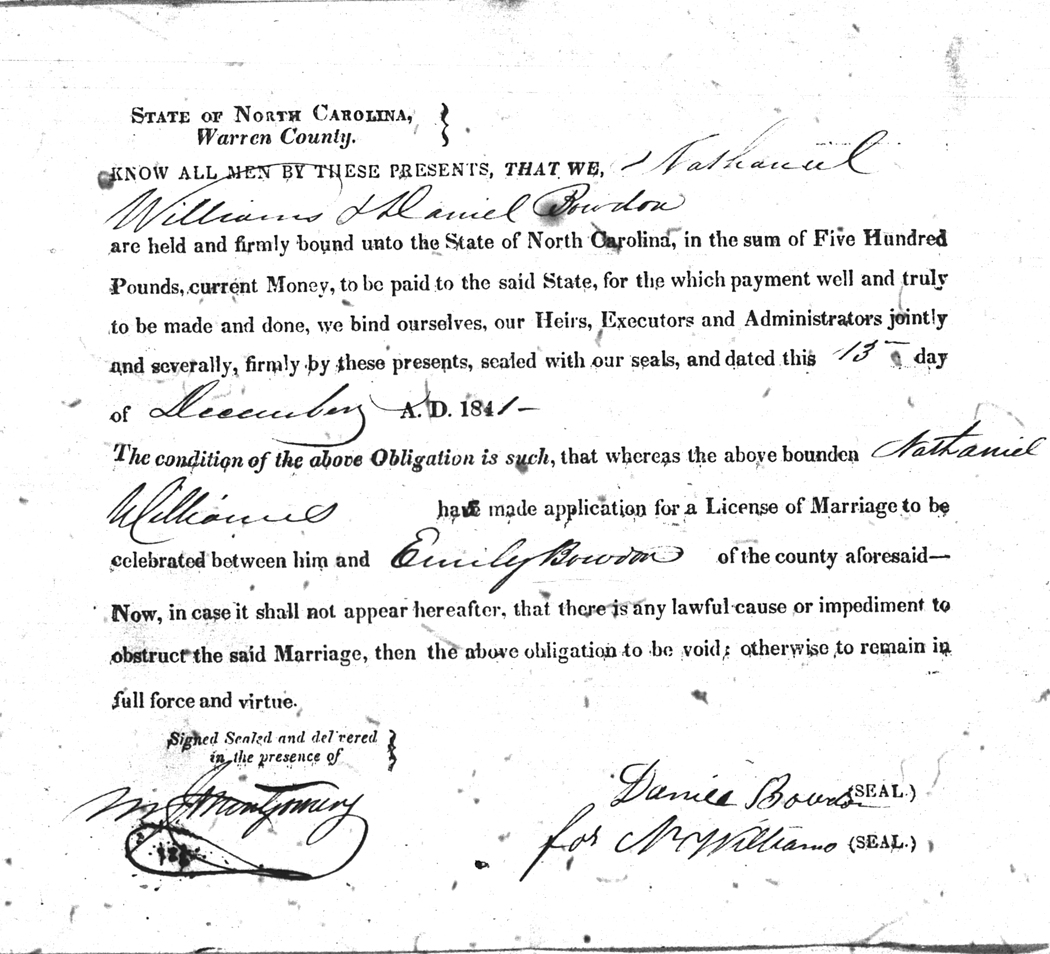 STATE OF NORTH CAROLINA,
Warren County.
KNOW ALL MEN BY THESE PRESENTS, THAT WE, Nathaniel
Williams & Daniel Bowdon
are held and firmly bound unto the State of North Carolina, in the sum of Five Hundred
Pounds, current Money, to be paid to the said State, for the which payment well and truly
to be made and done, we bind ourselves, our Heirs, Executors and Administrators jointly
and severally, firmly by these presents, sealed with our seals, and dated this 13 day
of December A. D. 1841-
The condition of the above Obligation is such, that whereas the above bounden Nathaniel
Williams have made application for a License of Marriage to be
celebrated between him and Emily Bowdon of the county aforesaid—
Now, in case it shall not appear hereafter, that there is any lawful cause or impediment to
obstruct the said Marriage, then the above obligation to be void; otherwise to remain in
full force and virtue.
Signed Sealed and delivered
in the presence of
Montgomery
Daniel Bowdon (SEAL.)
for N Williams (SEAL.)